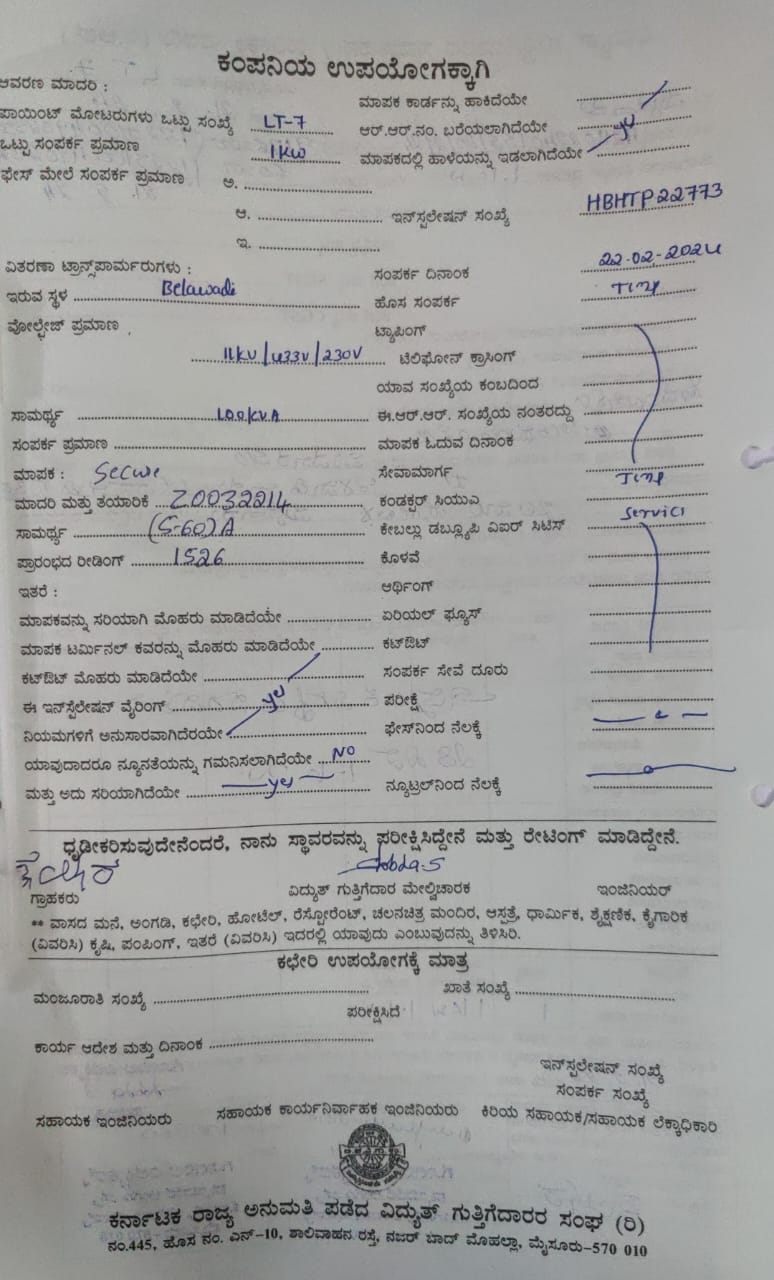 ಕಂಪನಿಯ ಉಪಯೋಗಕ್ಕಾಗಿ
ಆವರಣ ಮಾದರಿ :
ಮಾಪಕ ಕಾರ್ಡನ್ನು ಹಾಕಿದೆಯೇ
ಪಾಯಿಂಟ್ ಮೋಟರುಗಳು ಒಟ್ಟು ಸಂಖ್ಯೆ LT-7 ಆರ್.ಆರ್.ನಂ. ಬರೆಯಲಾಗಿದೆಯೇ
ಒಟ್ಟು ಸಂಪರ್ಕ ಪ್ರಮಾಣ 1KW ಮಾಪಕದಲ್ಲಿ ಹಾಳೆಯನ್ನು ಇಡಲಾಗಿದೆಯೇ yes
ಫೇಸ್ ಮೇಲೆ ಸಂಪರ್ಕ ಪ್ರಮಾಣ ಅ.
ಆ. ಇನ್‌ಸ್ಟಲೇಷನ್ ಸಂಖ್ಯೆ HBHTP22773
ಇ.
ವಿತರಣಾ ಟ್ರಾನ್ಸ್‌ಪಾರ್ಮರುಗಳು : ಸಂಪರ್ಕ ದಿನಾಂಕ 22-02-2024
ಇರುವ ಸ್ಥಳ Belawadi ಹೊಸ ಸಂಪರ್ಕ Temp
ವೋಲ್ಟೇಜ್ ಪ್ರಮಾಣ ಟ್ಯಾಪಿಂಗ್
11KV/433V/230V ಟೆಲಿಫೋನ್ ಕ್ರಾಸಿಂಗ್
ಯಾವ ಸಂಖ್ಯೆಯ ಕಂಬದಿಂದ
ಸಾಮರ್ಥ್ಯ 100KVA ಈ.ಆರ್.ಆರ್. ಸಂಖ್ಯೆಯ ನಂತರದ್ದು
ಸಂಪರ್ಕ ಪ್ರಮಾಣ ಮಾಪಕ ಓದುವ ದಿನಾಂಕ
ಮಾಪಕ : Secure ಸೇವಾಮಾರ್ಗ Temp
ಮಾದರಿ ಮತ್ತು ತಯಾರಿಕೆ Z0032214 ಕಂಡಕ್ಟರ್ ಸಿಯುಎ Service
ಸಾಮರ್ಥ್ಯ (5-60)A ಕೇಬಲ್ಲು ಡಬ್ಲ್ಯೂಪಿ ಎಐರ್ ಸಿಟಿಸ್
ಪ್ರಾರಂಭದ ರೀಡಿಂಗ್ 1526 ಕೊಳವೆ
ಇತರೆ : ಆರ್ಥಿಂಗ್
ಮಾಪಕವನ್ನು ಸರಿಯಾಗಿ ಮೊಹರು ಮಾಡಿದೆಯೇ ಏರಿಯಲ್ ಫ್ಯೂಸ್
ಮಾಪಕ ಟರ್ಮಿನಲ್ ಕವರನ್ನು ಮೊಹರು ಮಾಡಿದೆಯೇ ಕಟ್‌ಔಟ್
ಕಟ್‌ಔಟ್ ಮೊಹರು ಮಾಡಿದೆಯೇ ಸಂಪರ್ಕ ಸೇವೆ ದೂರು
ಈ ಇನ್‌ಸ್ಟೆಲೇಷನ್ ವೈರಿಂಗ್ yes ಪರೀಕ್ಷೆ
ನಿಯಮಗಳಿಗೆ ಅನುಸಾರವಾಗಿದೆರಯೇ ಫೇಸ್‌ನಿಂದ ನೆಲಕ್ಕೆ
ಯಾವುದಾದರೂ ನ್ಯೂನತೆಯನ್ನು ಗಮನಿಸಲಾಗಿದೆಯೇ NO
ಮತ್ತು ಅದು ಸರಿಯಾಗಿದೆಯೇ yes ನ್ಯೂಟ್ರಲ್‌ನಿಂದ ನೆಲಕ್ಕೆ
ಧೃಡೀಕರಿಸುವುದೇನೆಂದರೆ, ನಾನು ಸ್ಥಾವರವನ್ನು ಪರೀಕ್ಷಿಸಿದ್ದೇನೆ ಮತ್ತು ರೇಟಿಂಗ್ ಮಾಡಿದ್ದೇನೆ.
ಗ್ರಾಹಕರು ವಿದ್ಯುತ್ ಗುತ್ತಿಗೆದಾರ ಮೇಲ್ವಿಚಾರಕ ಇಂಜಿನಿಯರ್
** ವಾಸದ ಮನೆ, ಅಂಗಡಿ, ಕಛೇರಿ, ಹೋಟೆಲ್, ರೆಸ್ಟೋರೆಂಟ್, ಚಲನಚಿತ್ರ ಮಂದಿರ, ಆಸ್ಪತ್ರೆ, ಧಾರ್ಮಿಕ, ಶೈಕ್ಷಣಿಕ, ಕೈಗಾರಿಕ
(ವಿವರಿಸಿ) ಕೃಷಿ, ಪಂಪಿಂಗ್, ಇತರೆ (ವಿವರಿಸಿ) ಇದರಲ್ಲಿ ಯಾವುದು ಎಂಬುವುದನ್ನು ತಿಳಿಸಿರಿ.
ಕಛೇರಿ ಉಪಯೋಗಕ್ಕೆ ಮಾತ್ರ
ಮಂಜೂರಾತಿ ಸಂಖ್ಯೆ ಖಾತೆ ಸಂಖ್ಯೆ
ಪರೀಕ್ಷಿಸಿದೆ
ಕಾರ್ಯ ಆದೇಶ ಮತ್ತು ದಿನಾಂಕ
ಇನ್‌ಸ್ಟಲೇಷನ್ ಸಂಖ್ಯೆ
ಸಂಪರ್ಕ ಸಂಖ್ಯೆ
ಸಹಾಯಕ ಇಂಜಿನಿಯರು ಸಹಾಯಕ ಕಾರ್ಯನಿರ್ವಾಹಕ ಇಂಜಿನಿಯರು ಕಿರಿಯ ಸಹಾಯಕ/ಸಹಾಯಕ ಲೆಕ್ಕಾಧಿಕಾರಿ
ಕರ್ನಾಟಕ ರಾಜ್ಯ ಅನುಮತಿ ಪಡೆದ ವಿದ್ಯುತ್ ಗುತ್ತಿಗೆದಾರರ ಸಂಘ (ರಿ)
ನಂ.445, ಹೊಸ ನಂ. ಎನ್-10, ಶಾಲಿವಾಹನ ರಸ್ತೆ, ನಜರ್ ಬಾದ್ ಮೊಹಲ್ಲಾ, ಮೈಸೂರು-570 010